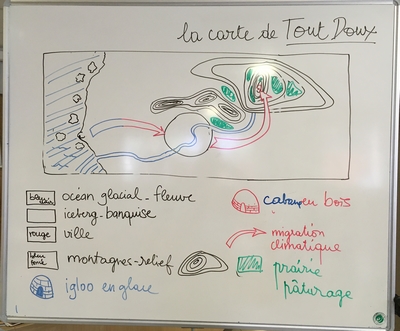 la carte de Tout Doux
océan glacial - fleuve
iceberg - banquise
rouge
ville
montagnes - relief
igloo en glace
cabane en bois
migration
climatique
prairie
pâturage